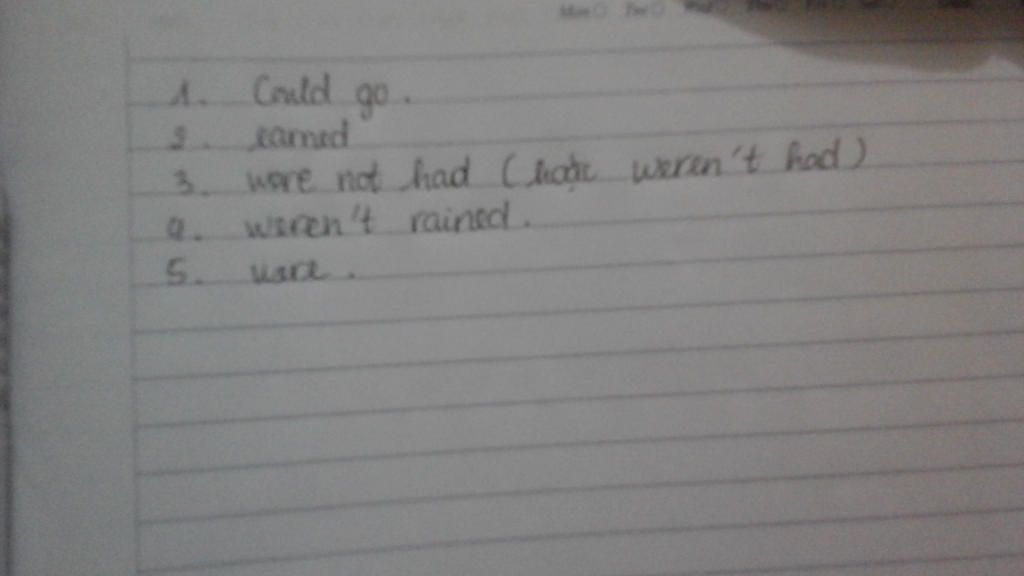 1. Could go.
2. earned
3. were not had (hoặc weren't had)
4. weren't rained.
5. were.